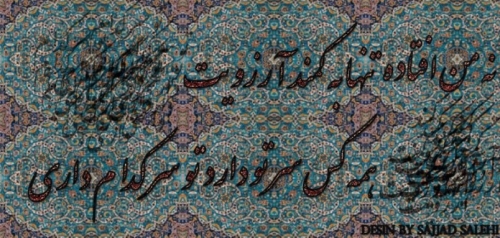 نه من افتاده تنها به کمند آرزویت
همه کس سر تو دارد تو سر کدام داری
DESIN BY SAJJAD SALEHI